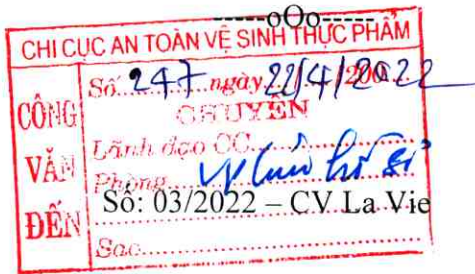 -----oOo-----
CHI CỤC AN TOÀN VỆ SINH THỰC PHẨM
CÔNG VĂN ĐẾN
Số 247 ngày 22/4/2022
CHUYỂN
Lãnh đạo CC
Phòng
Số: 03/2022 – CV La Vie
Sao